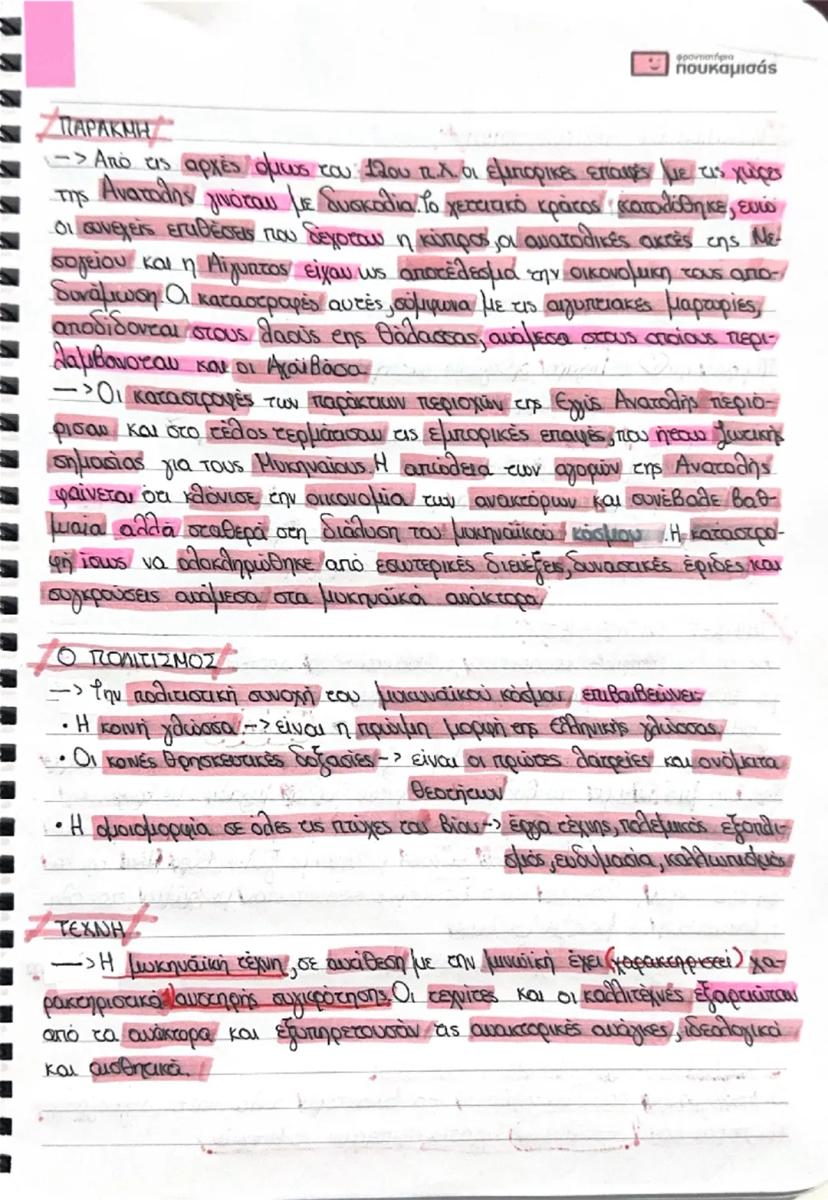 φροντιστήρια
πουκαμισάς
ΠΑΡΑΚΜΗ
-> Από τις αρχές όμως του 12ου π.Χ. οι εμπορικές επαφές με τις χώρες
της Ανατολής γινόταν με δυσκολία. Το χεττιτικό κράτος καταλύθηκε, ενώ
οι συνεχείς επιθέσεις που δέχοταν η κύπρος, οι ανατολικές ακτές της Με-
σογείου και η Αίγυπτος είχαν ως αποτέλεσμα την οικονομική τους απο-
δυνάμωση. Οι καταστροφές αυτές, σύμφωνα με τις αιγυπτιακές μαρτυρίες,
αποδίδονται στους λαούς της θάλασσας, ανάμεσα στους οποίους περι-
λαμβάνονταν και οι Αχαϊβάσα.
-> Οι καταστροφές των παράκτιων περιοχών της Εγγύς Ανατολής περιό-
ρισαν και στο τέλος τερμάτισαν τις εμπορικές επαφές, που ήταν ζωτικής
σημασίας για τους Μυκηναίους. Η απώλεια των αγορών της Ανατολής
φαίνεται ότι κλόνισε την οικονομία των ανακτόρων και συνέβαλε βαθ-
μιαία αλλά σταθερά στη διάλυση του μυκηναϊκού κόσμου. Η καταστρο-
φή ίσως να ολοκληρώθηκε από εσωτερικές διενέξεις, δυναστικές έριδες και
συγκρούσεις ανάμεσα στα μυκηναϊκά ανάκτορα.
Ο ΠΟΛΙΤΙΣΜΟΣ
-> Την πολιτιστική συνοχή του μυκηναϊκού κόσμου επιβαιβεώνει:
• Η κοινή γλώσσα -> είναι η πρώιμη μορφή της ελληνικής γλώσσας
• Οι κοινές θρησκευτικές δοξασίες -> είναι οι πρώτες λατρείες και ονόματα
θεοτήτων
• Η ομοιομορφία σε όλες τις πτύχες του βίου -> έργα τέχνης, πολεμικός εξοπλι-
σμός, ενδυμασία, καλλωπισμός
ΤΕΧΝΗ
-> Η μυκηναϊκή τέχνη, σε αντίθεση με την μινωϊκή έχει (χαρακτηριστεί) χα-
ρακτηριστικά αυστηρής συγκρότησης. Οι τεχνίτες και οι καλλιτέχνές εξαρτιώταν
από τα ανάκτορα και εξυπηρετούσαν τις ανακτορικές ανάγκες, ιδεολογικά
και αισθητικά.